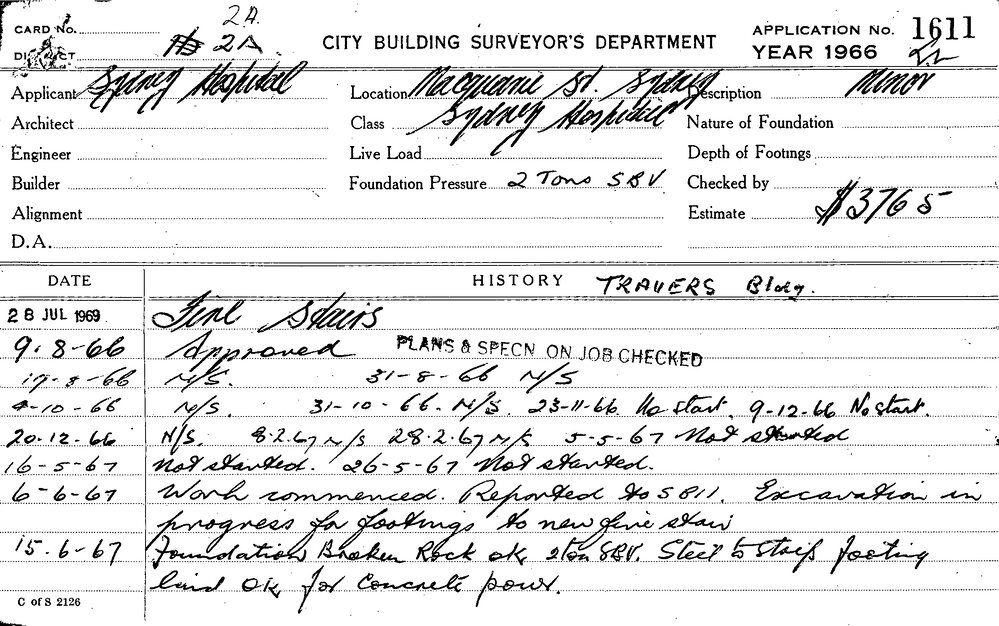 2A.
CARD No. 2A CITY BUILDING SURVEYOR'S DEPARTMENT APPLICATION No. 1611
DISTRICT YEAR 1966
Applicant Sydney Hospital Location Macquarie St. Sydney Description Minor
Architect Class Sydney Hospital Nature of Foundation
Engineer Live Load Depth of Footings
Builder Foundation Pressure 2 Tons SBV Checked by
Alignment Estimate $3765
D.A.
DATE HISTORY TRAVERS Bldg.
28 JUL 1969 Fire Stairs
9.8-66 Approved PLANS & SPECN ON JOB CHECKED
19-8-66 N/S. 31-8-66 N/S
4-10-66 N/S. 31-10-66. N/S. 23-11-66. No start. 9-12-66 No start.
20.12.66 N/S. 8.2.67 N/S 28.2.67 N/S 5-5-67 Not started
16-5-67 Not started. 26-5-67 Not started.
6-6-67 Work commenced. Reported to 5811. Excavation in
progress for footings to new fire stair
15.6-67 Foundation Broken Rock ok 2 ton SBV. Steel to strip footing
laid ok for concrete pour.
C of S 2126